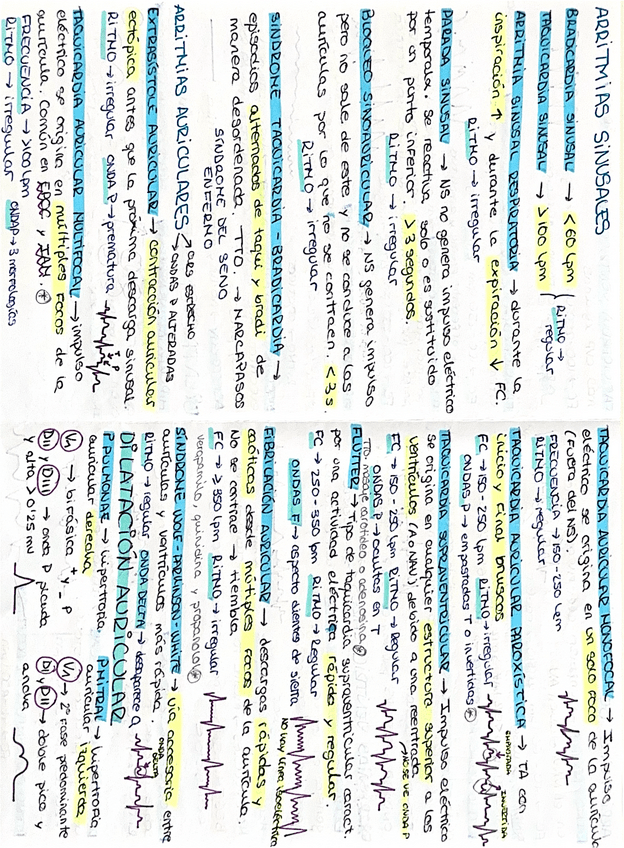 ARRITMIAS SINUSALES
BRADICARDIA SINUSAL → < 60 lpm
TAQUICARDIA SINUSAL → > 100 lpm
RITMO → regular
ARRITMIA SINUSAL RESPIRATORIA → durante la
inspiración ↑ y durante la expiración ↓ FC.
RITMO → irregular
PARADA SINUSAL → NS no genera impulso eléctrico
temporala. Se reactiva solo o es sustituido
por un parto inferior. > 3 segundos.
RITMO → irregular
BLOQUEO SINOAURICULAR → NS genera impulso
pero no sale de este y no se conduce a las
aurículas por lo que no se contraen. < 3 s.
RITMO → irregular
SINDROME TAQUICARDIA - BRADICARDIA →
episodios alternados de taqui y bradi de
manera desordenada. TTO. → MARCAPASOS
SÍNDROME DEL SENO
ENFERMO
ARRITMIAS AURICULARES
QRS ESTRECHO
ONDAS P ALTERADAS
EXTRASÍSTOLE AURICULAR → contracción auricular
ectópica antes que la próxima descarga sinusal.
RITMO → irregular ONDA P → prematura
T P
TAQUICARDIA AURICULAR MULTIFOCAL → impulso
eléctrico se origina en múltiples focos de la
aurícula. Común en EPOC y IAM.
FRECUENCIA → >100 lpm
RITMO → irregular ONDA P → 3 morfologías
TAQUICARDIA AURICULAR MONOFOCAL → Impulso
eléctrico se origina en un solo foco de la aurícula
(Fuera del NS).
FRECUENCIA → 150-250 lpm
RITMO → regular
TAQUICARDIA AURICULAR PAROXÍSTICA → TA con
inicio y final bruscos
FC → 150-250 lpm RITMO → irregular
ONDAS P → empastadas T o invertidas
EMPASTADA
INVERTIDA
TAQUICARDIA SUPRAVENTRICULAR → Impulso eléctrico
se origina en cualquier estructura superior a los
ventrículos (A o NAV) debido a una reentrada.
FC → 150-250 lpm RITMO → Regular
NO SE VE ONDA P
ONDAS P → ocultas en T
TTO. masaje carotídeo o adenosina
FLUTTER → tipo de taquicardia supraventricular caract.
por una actividad eléctrica rápida y regular
FC → 250-350 lpm RITMO → Regular
ONDAS F → aspecto dientes de sierra
NO HAY LÍNEA ISOELÉCTRICA
FIBRILACIÓN AURICULAR → descargas rápidas y
caóticas desde múltiples focos de la aurícula.
No se contrae → tiembla
FC → ≥ 350 lpm RITMO → irregular
verapamilo, quinidina y propanolol
SINDROME WOLF-PARKINSON-WHITE → vía accesoria entre
aurículas y ventrículos más rápida.
RITMO → regular ONDA DELTA → desaparece Q
ONDA DELTA
DILATACIÓN AURICULAR
P PULMONAE → hipertrofia
auricular derecha
V1 → bifásica + y - P
DII y DIII → onda P picuda
y alta > 0'25 mV
P MITRAL → hipertrofia
auricular izquierda
V1 → 2ª fase predominante
DI y DII → doble pico y
ancha